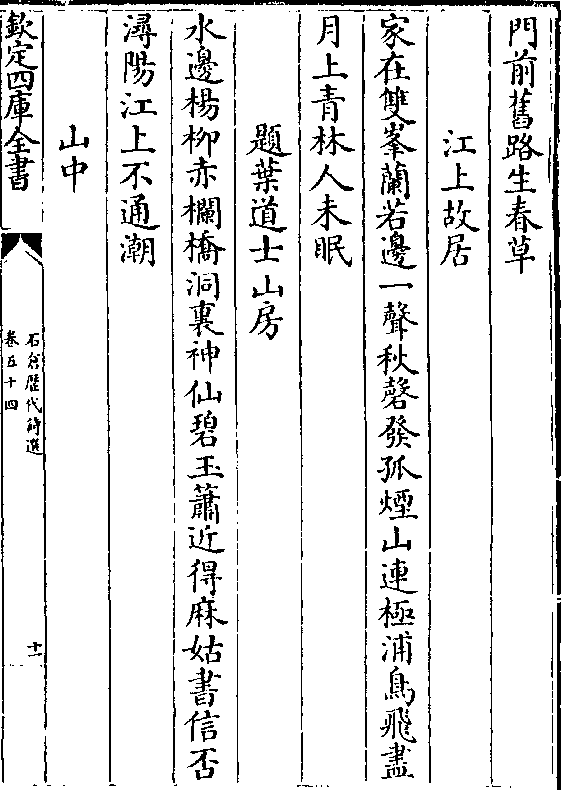 門前舊路生春草
江上故居
家在雙峯蘭若邊一聲秋磬發孤煙山連極浦鳥飛盡
月上青林人未眠
題葉道士山房
水邊楊柳赤欄橋洞裏神仙碧玉簫近得麻姑書信否
潯陽江上不通潮
山中
欽定四庫全書
石倉歷代詩選
卷五十四
十一